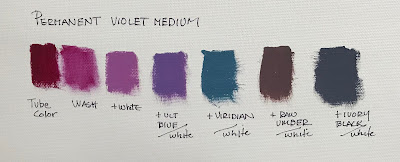 PERMANENT VIOLET MEDIUM
Tube
Color
WASH
+ White
+ ULT
BLUE/
white
+ VIRIDIAN/
white
+ RAW
UMBER/
white
+ IVORY
BLACK/
white